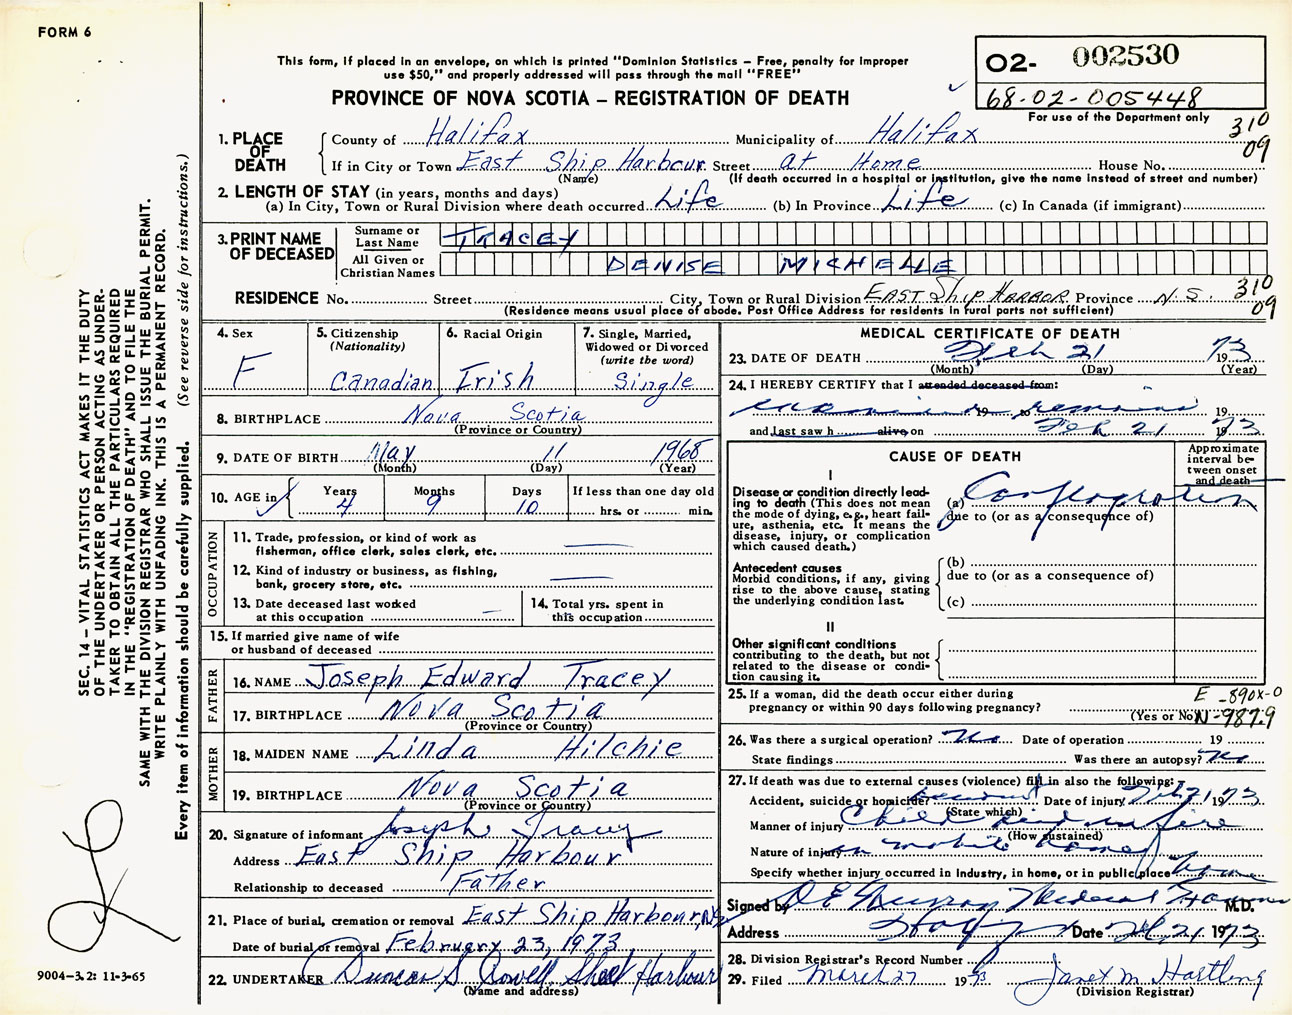 FORM 6
This form, if placed in an envelope, on which is printed "Dominion Statistics — Free, penalty for improper
use $50," and properly addressed will pass through the mail "FREE"
PROVINCE OF NOVA SCOTIA — REGISTRATION OF DEATH
02- 002530
68-02-005448
For use of the Department only
310
09
1. PLACE OF DEATH
County of Halifax Municipality of Halifax
If in City or Town East Ship Harbour Street at Home House No.
(Name) (If death occurred in a hospital or institution, give the name instead of street and number)
2. LENGTH OF STAY (in years, months and days)
(a) In City, Town or Rural Division where death occurred Life (b) In Province Life (c) In Canada (if immigrant)
3. PRINT NAME OF DECEASED
Surname or Last Name TRACEY
All Given or Christian Names DENISE MICHELLE
RESIDENCE No. Street City, Town or Rural Division EAST Ship HARBOR Province N.S. 310
(Residence means usual place of abode. Post Office Address for residents in rural parts not sufficient) 09
4. Sex F
5. Citizenship (Nationality) Canadian
6. Racial Origin Irish
7. Single, Married, Widowed or Divorced (write the word) Single
8. BIRTHPLACE Nova Scotia
(Province or Country)
9. DATE OF BIRTH May 11 1968
(Month) (Day) (Year)
10. AGE in Years 4 Months 9 Days 10 If less than one day old
hrs. or min.
OCCUPATION
11. Trade, profession, or kind of work as
fisherman, office clerk, sales clerk, etc.
12. Kind of industry or business, as fishing,
bank, grocery store, etc.
13. Date deceased last worked
at this occupation
14. Total yrs. spent in
this occupation
15. If married give name of wife
or husband of deceased
FATHER
16. NAME Joseph Edward Tracey
17. BIRTHPLACE Nova Scotia
(Province or Country)
MOTHER
18. MAIDEN NAME Linda Hilchie
19. BIRTHPLACE Nova Scotia
(Province or Country)
20. Signature of informant Joseph Tracey
Address East Ship Harbour
Relationship to deceased Father
21. Place of burial, cremation or removal East Ship Harbour, NS
Date of burial or removal February 23, 1973
22. UNDERTAKER Duncan S. Powell Sheet Harbour
(Name and address)
MEDICAL CERTIFICATE OF DEATH
23. DATE OF DEATH Feb 21 1973
(Month) (Day) (Year)
24. I HEREBY CERTIFY that I attended deceased from:
examined 19 to remains 19
and last saw h alive on Feb 21 1973
CAUSE OF DEATH
Approximate interval between onset and death
I
Disease or condition directly leading to death (This does not
mean the mode of dying, e.g., heart failure, asthenia, etc. It means the
disease, injury, or complication
which caused death.)
(a) Conflagration
due to (or as a consequence of)
Antecedent causes
Morbid conditions, if any, giving
rise to the above cause, stating
the underlying condition last.
(b)
due to (or as a consequence of)
(c)
II
Other significant conditions
contributing to the death, but not
related to the disease or condition causing it.
25. If a woman, did the death occur either during
pregnancy or within 90 days following pregnancy?
(Yes or No)
E-890X-0
N-987.9
26. Was there a surgical operation? No Date of operation 19
State findings Was there an autopsy? No
27. If death was due to external causes (violence) fill in also the following:
Accident, suicide or homicide? Date of injury Feb 21 1973
(State which)
Manner of injury Child died in fire
(How sustained)
Nature of injury in mobile home
Specify whether injury occurred in industry, in home, or in public place home
Signed by D E Murray Medical M.D.
Address Date Feb, 21 1973
28. Division Registrar's Record Number 6
29. Filed March 27 1973 Janet M. Hartling
(Division Registrar)
SEC. 14 — VITAL STATISTICS ACT MAKES IT THE DUTY
OF THE UNDERTAKER OR PERSON ACTING AS UNDER-
TAKER TO OBTAIN ALL THE PARTICULARS REQUIRED
IN THE "REGISTRATION OF DEATH" AND TO FILE THE
SAME WITH THE DIVISION REGISTRAR WHO SHALL ISSUE THE BURIAL PERMIT.
WRITE PLAINLY WITH UNFADING INK. THIS IS A PERMANENT RECORD.
Every item of information should be carefully supplied. (See reverse side for instructions.)
9004-3.2: 11-3-65